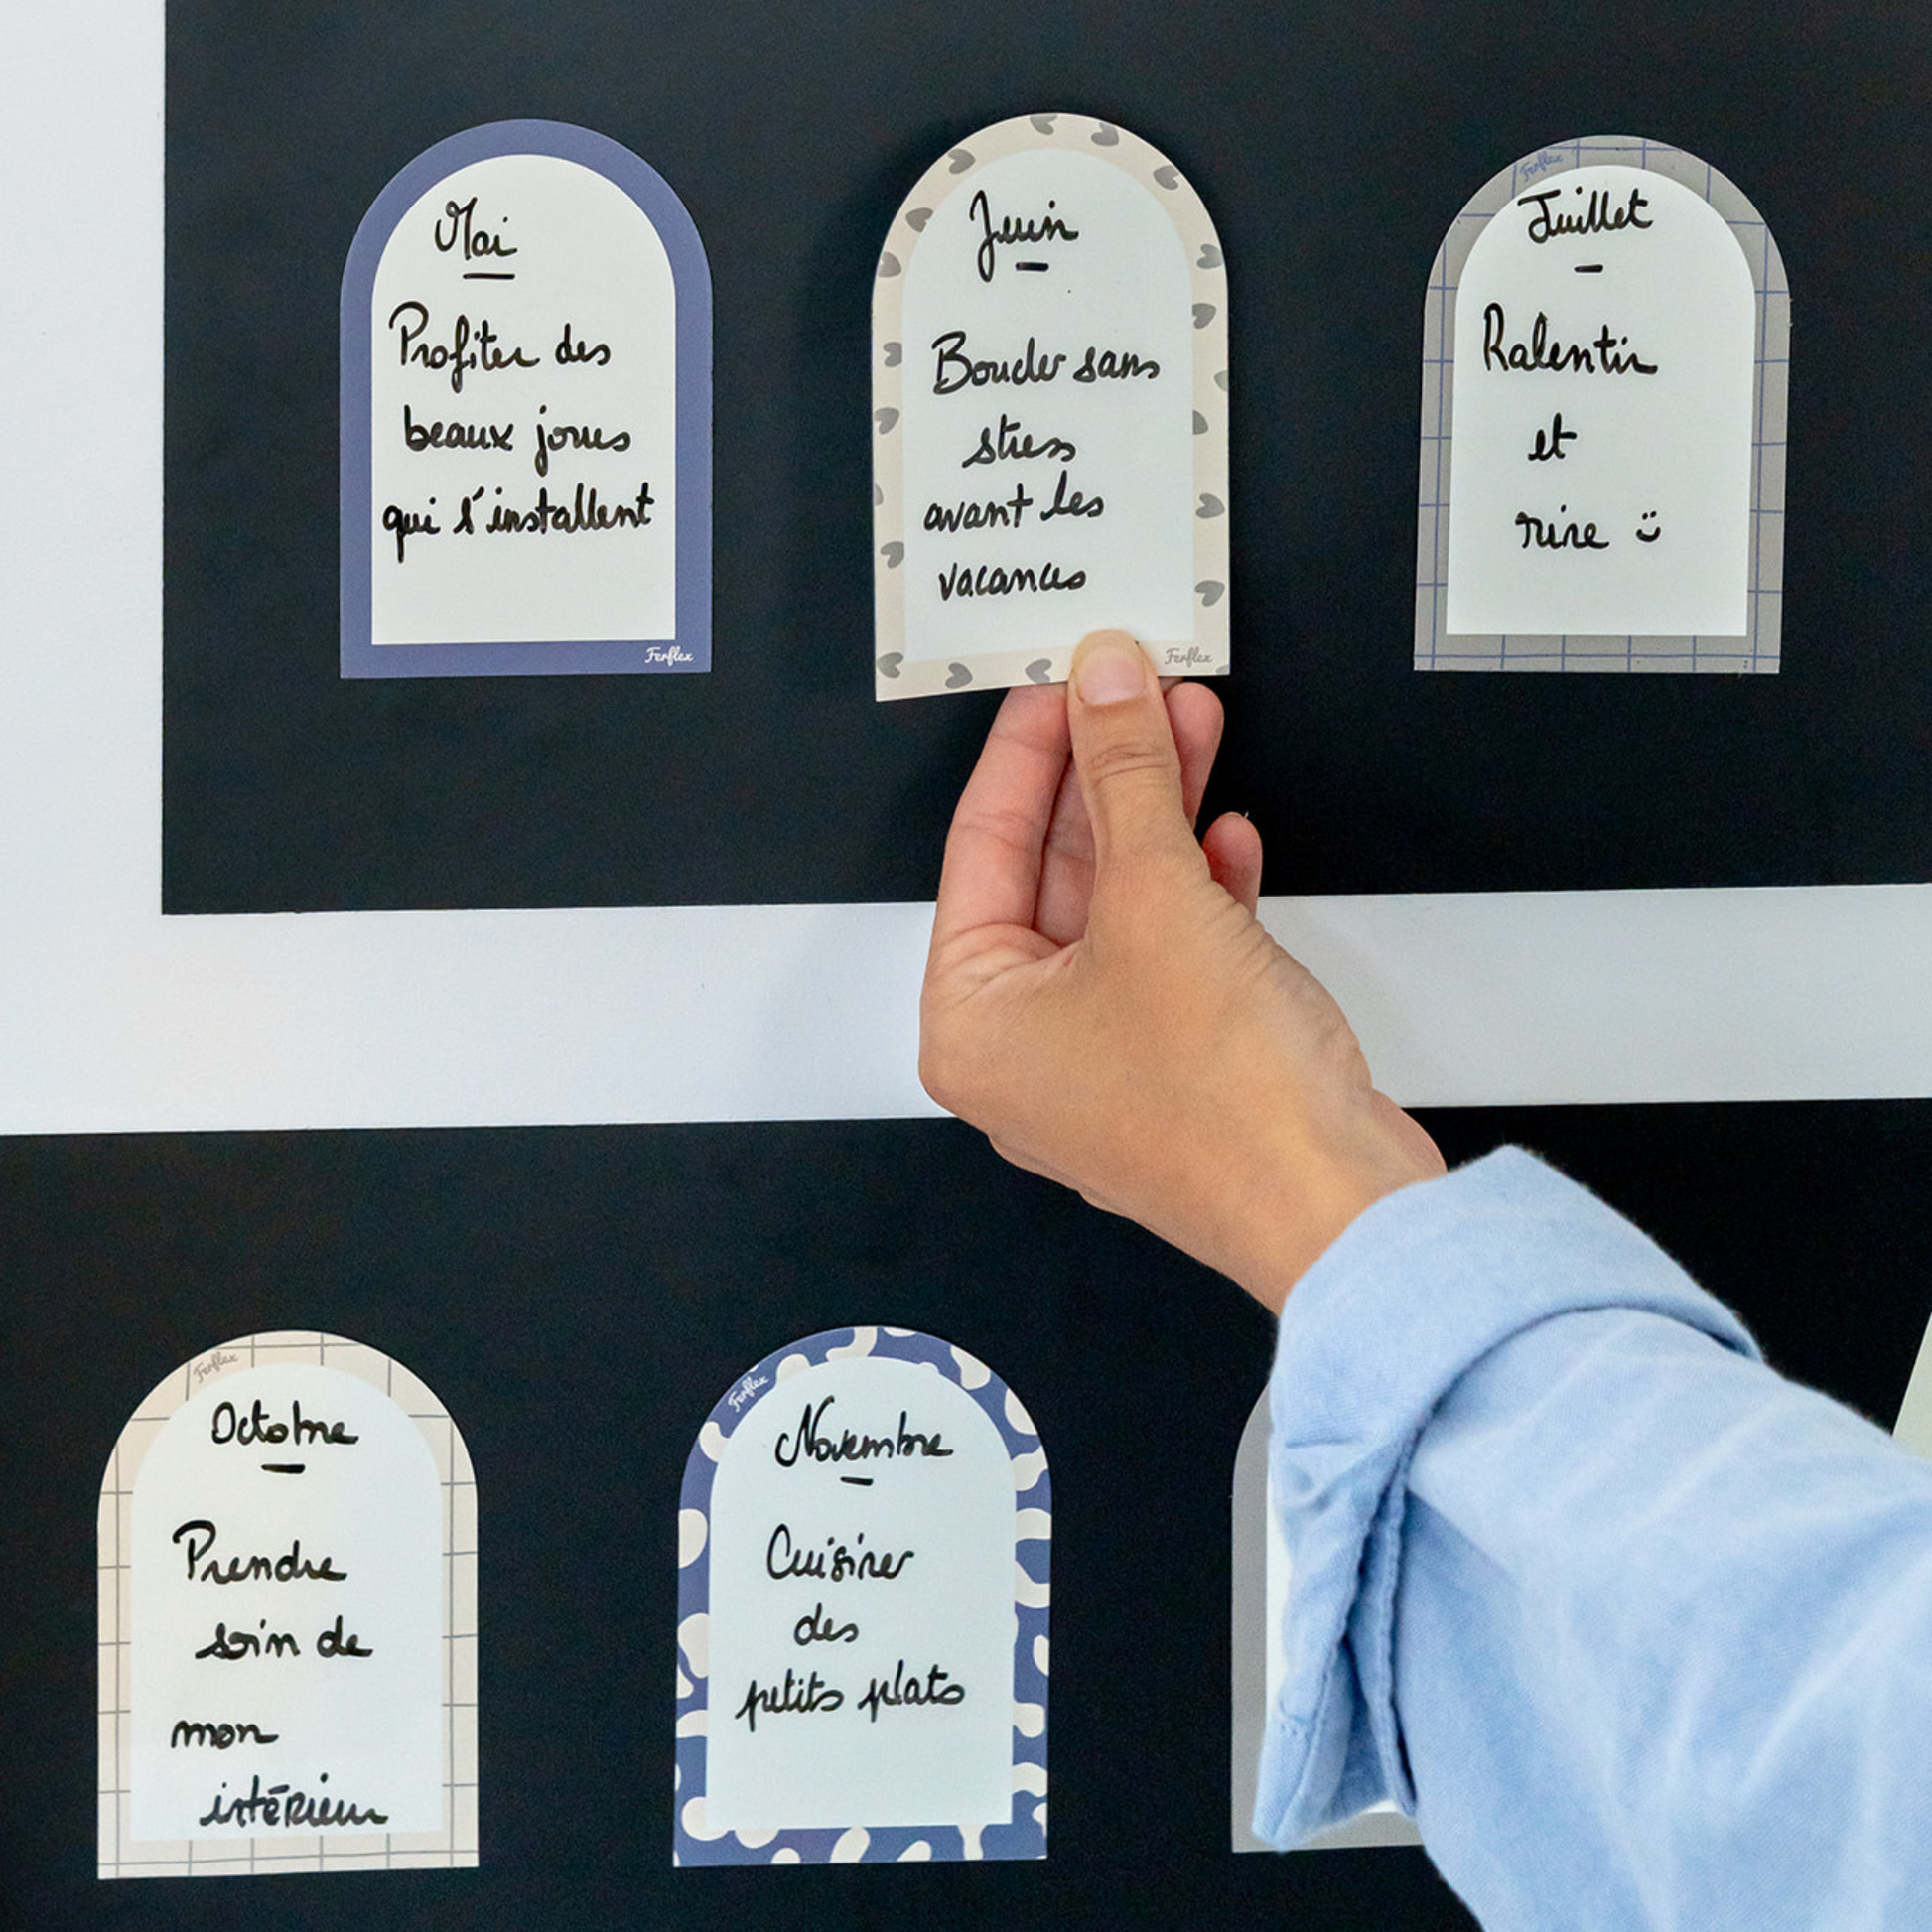 Mai
Profiter des
beaux jours
qui s'installent
Ferflex
Juin
Boucler sans
stress
avant les
vacances
Ferflex
Ferflex
Juillet
Ralentir
et
rire :)
Ferflex
Octobre
Prendre
soin de
mon
intérieur
Ferflex
Novembre
Cuisiner
des
petits plats